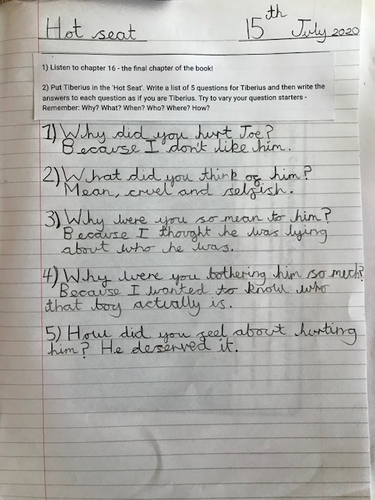 Hot seat 15th July 2020
1) Listen to chapter 16 - the final chapter of the book!
2) Put Tiberius in the 'Hot Seat'. Write a list of 5 questions for Tiberius and then write the
answers to each question as if you are Tiberius. Try to vary your question starters -
Remember: Why? What? When? Who? Where? How?
1) Why did you hurt Joe?
Because I don't like him.
2) What did you think of him?
Mean, cruel and selfish.
3) Why were you so mean to him?
Because I thought he was lying
about who he was.
4) Why were you bothering him so much?
Because I wanted to know who
that boy actually is.
5) How did you feel about hurting
him? He deserved it.